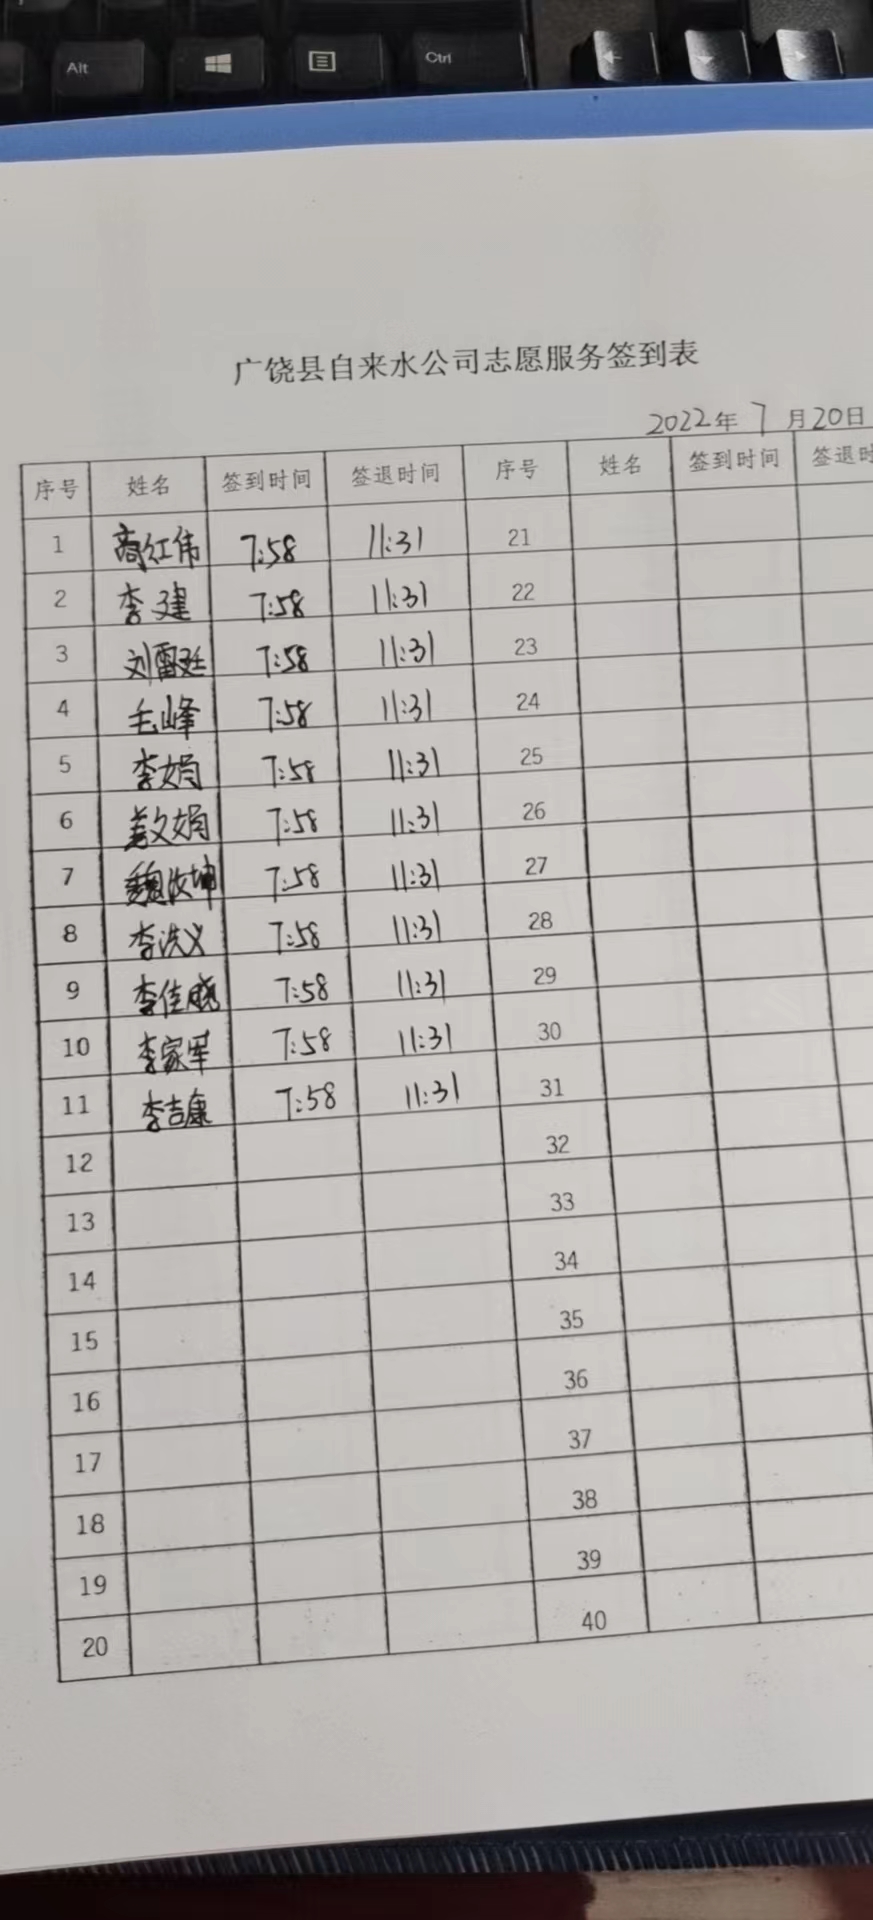 Alt
Ctrl
广饶县自来水公司志愿服务签到表
2022年 7 月20日
序号 姓名 签到时间 签退时间 序号 姓名 签到时间 签退时
1 商红伟 7:58 11:31 21
2 李建 7:58 11:31 22
3 刘雷廷 7:58 11:31 23
4 毛峰 7:58 11:31 24
5 李娟 7:58 11:31 25
6 娟 7:58 11:31 26
7 魏汝坤 7:58 11:31 27
8 李洪义 7:58 11:31 28
9 李佳晓 7:58 11:31 29
10 李家军 7:58 11:31 30
11 李吉康 7:58 11:31 31
12 32
13 33
14 34
15 35
16 36
17 37
18 38
19 39
20 40